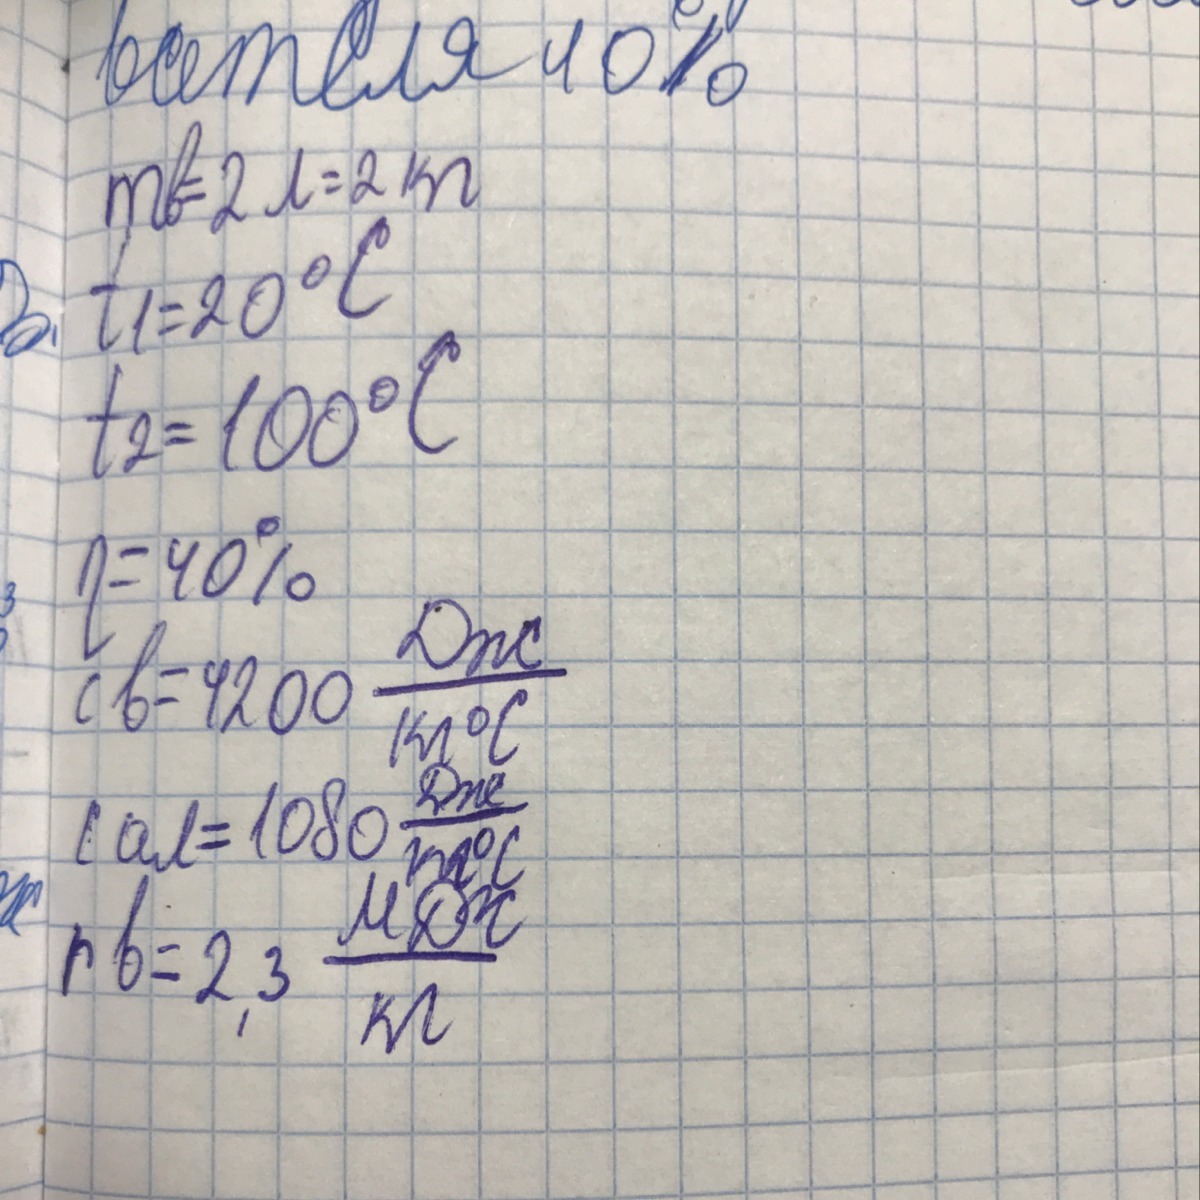 вателя 40%
mв=2 л=2 кг
t1=20°C
t2=100°C
η=40%
cв=4200 Дж/кг°C
cал=1080 Дж/кг°C
rв=2,3 МДж/кг